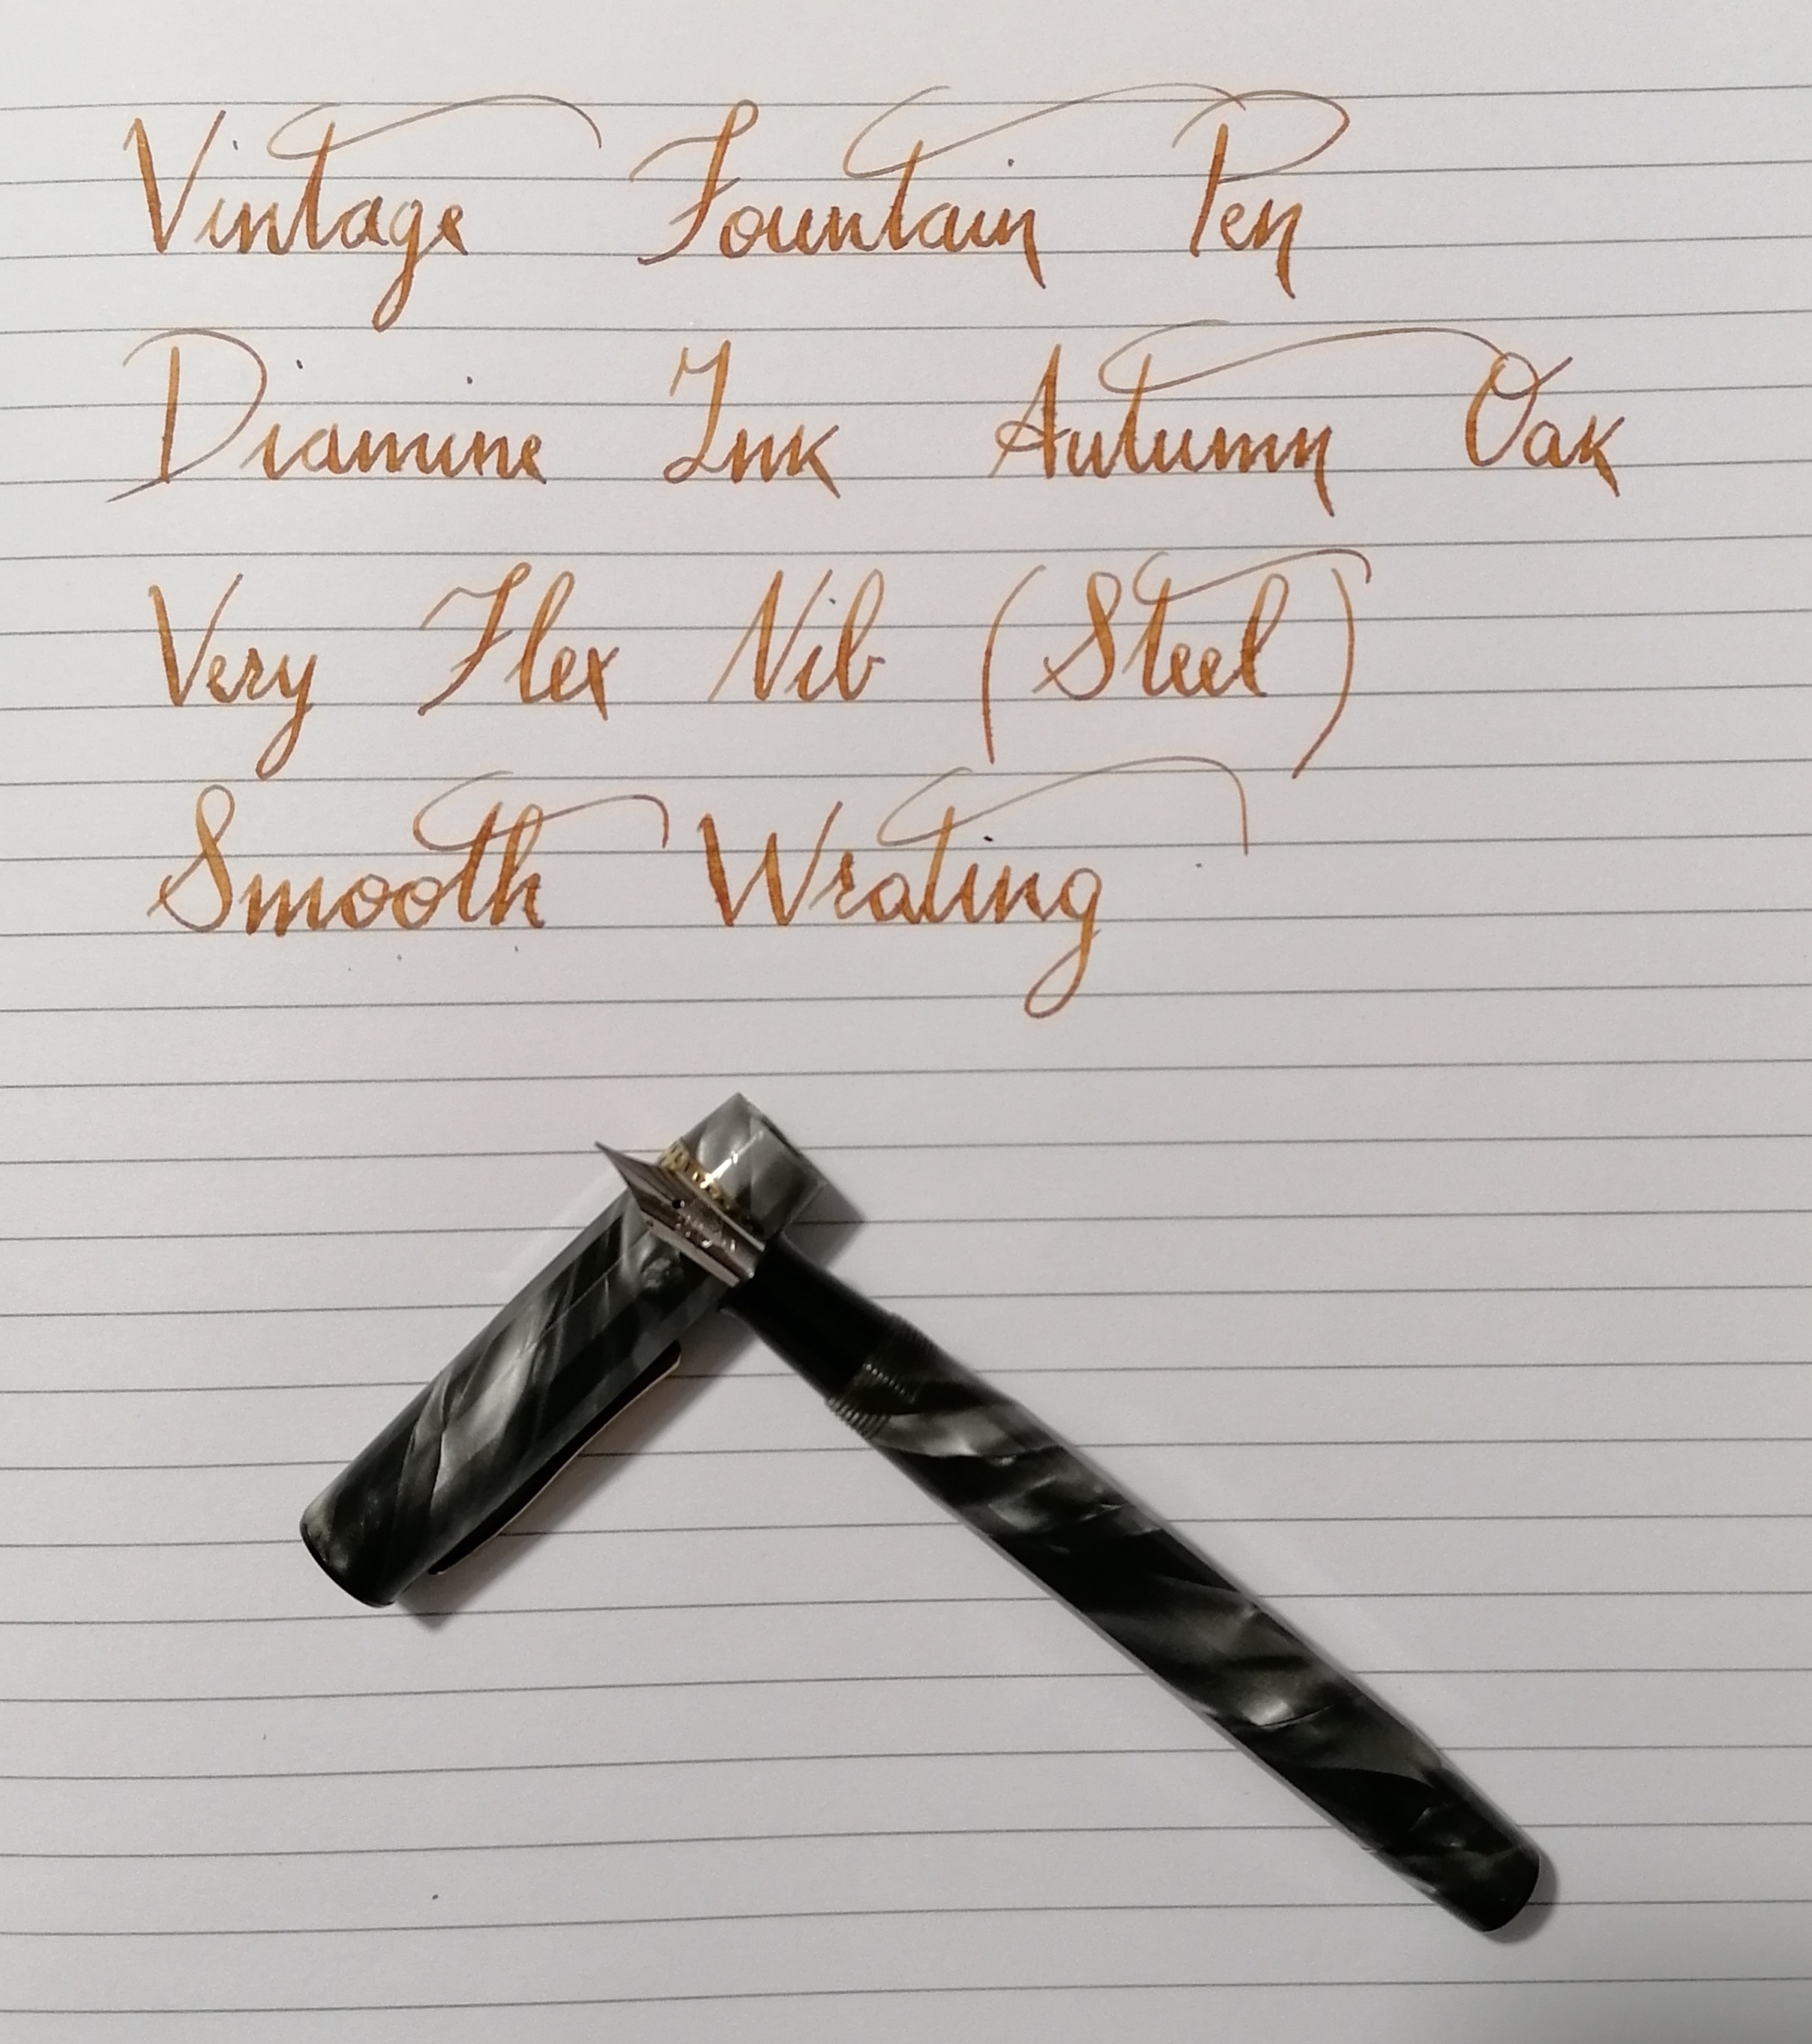 Vintage Fountain Pen
Diamine Ink Autumn Oak
Very Flex Nib (Steel)
Smooth Wrating